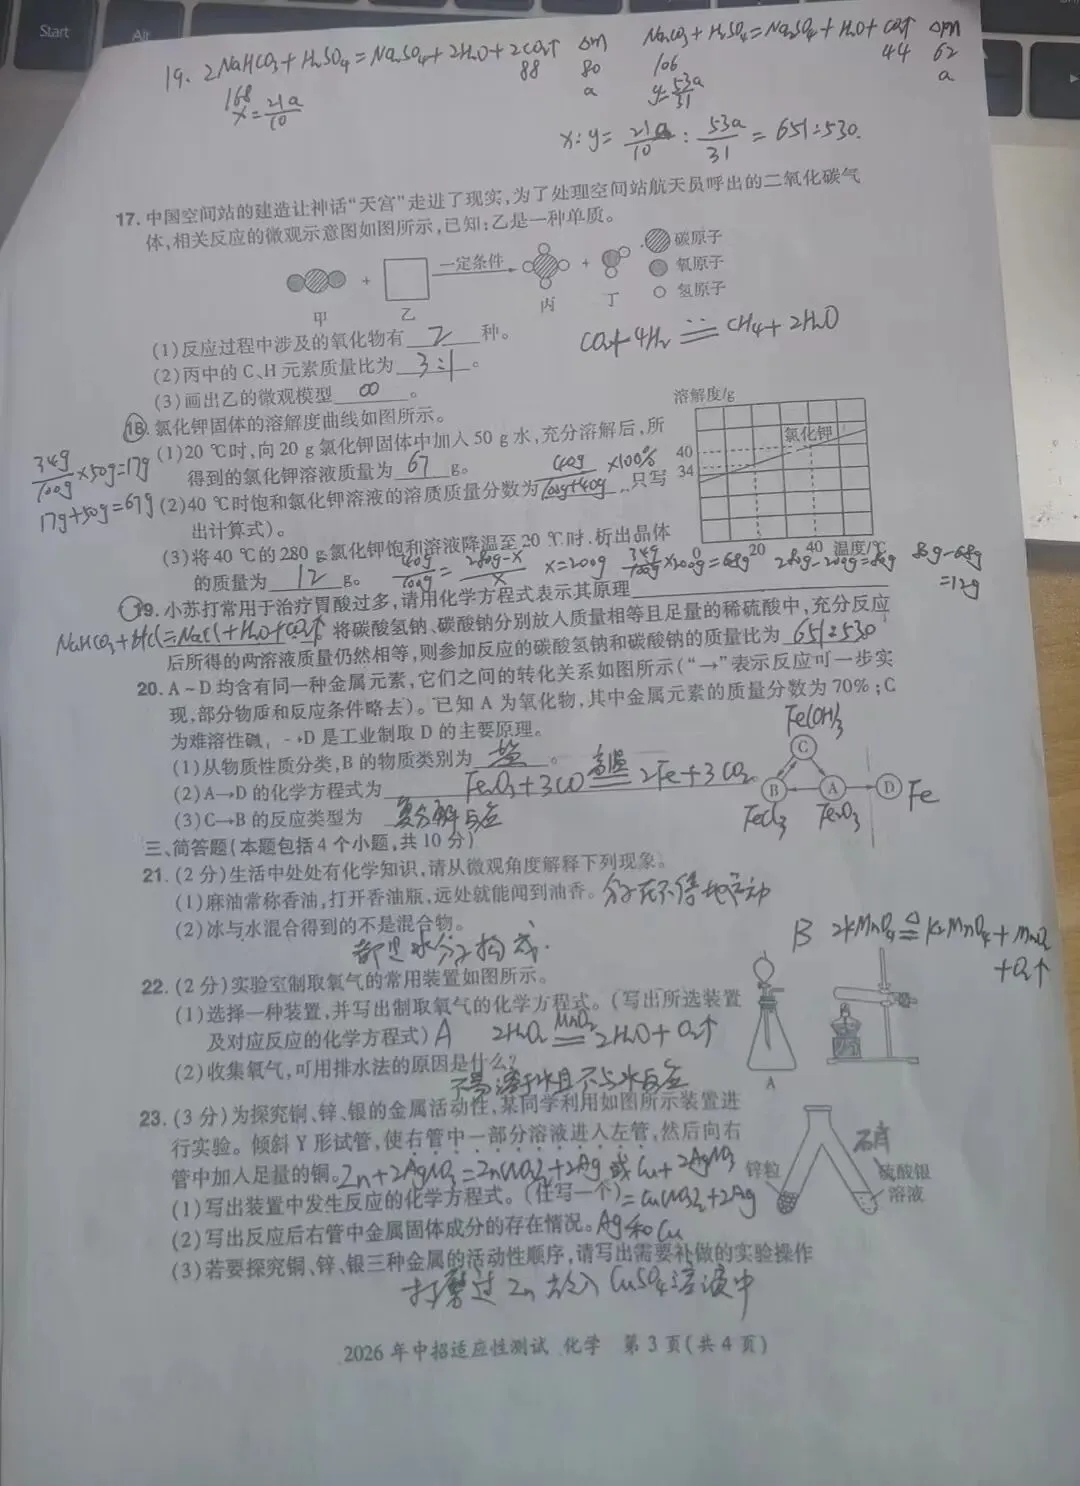 Start
Alt
19. 2NaHCO₃+H₂SO₄=Na₂SO₄+2H₂O+2CO₂↑ Δm
168 88 80
x=21a/10 a
Na₂CO₃+H₂SO₄=Na₂SO₄+H₂O+CO₂↑ Δm
106 44 62
y=53a/31 a
x:y=21a/10:53a/31=651:530.
17. 中国空间站的建造让神话“天宫”走进了现实,为了处理空间站航天员呼出的二氧化碳气
体,相关反应的微观示意图如图所示,已知:乙是一种单质。
+ 一定条件 +
甲 乙 丙 丁
碳原子
氧原子
氢原子
(1)反应过程中涉及的氧化物有 2 种。
CO₂+4H₂ 一定条件 CH₄+2H₂O
(2)丙中的C、H元素质量比为 3:1 。
(3)画出乙的微观模型 ∞ 。
18. 氯化钾固体的溶解度曲线如图所示。
(1)20 ℃时,向20 g氯化钾固体中加入50 g水,充分溶解后,所
得到的氯化钾溶液质量为 67 g。
34g/100g×50g=17g
17g+50g=67g
(2)40 ℃时饱和氯化钾溶液的溶质质量分数为 40g/100g+40g ×100% (只写
出计算式)。
溶解度/g
氯化钾
40
34
0 20 40 温度/℃
(3)将40 ℃的280 g氯化钾饱和溶液降温至20 ℃时,析出晶体
的质量为 12 g。
40g/100g=280g-x/x x=200g 34g/100g×200g=68g 280g-200g=80g 80g-68g
=12g
19. 小苏打常用于治疗胃酸过多,请用化学方程式表示其原理
NaHCO₃+HCl=NaCl+H₂O+CO₂↑ 将碳酸氢钠、碳酸钠分别放入质量相等且足量的稀硫酸中,充分反应
后所得的两溶液质量仍然相等,则参加反应的碳酸氢钠和碳酸钠的质量比为 651:530
20. A~D均含有同一种金属元素,它们之间的转化关系如图所示(“→”表示反应可一步实
现,部分物质和反应条件略去)。已知A为氧化物,其中金属元素的质量分数为70%;C
为难溶性碱, →D是工业制取D的主要原理。
(1)从物质性质分类,B的物质类别为 盐 。
(2)A→D的化学方程式为 Fe₂O₃+3CO 高温 2Fe+3CO₂
(3)C→B的反应类型为 复分解反应
Fe(OH)₃
C
B A D Fe
FeCl₃ Fe₂O₃
三、简答题(本题包括4个小题,共10分)
21. (2分)生活中处处有化学知识,请从微观角度解释下列现象。
(1)麻油常称香油,打开香油瓶,远处就能闻到油香。 分子在不停地运动
(2)冰与水混合得到的不是混合物。
都是水分子构成.
22. (2分)实验室制取氧气的常用装置如图所示。
(1)选择一种装置,并写出制取氧气的化学方程式。(写出所选装置
及对应反应的化学方程式) A 2H₂O₂ MnO₂ 2H₂O+O₂↑
B 2KMnO₄ △ K₂MnO₄+MnO₂
+O₂↑
(2)收集氧气,可用排水法的原因是什么?
不易溶于水且不与水反应
A
23. (3分)为探究铜、锌、银的金属活动性,某同学利用如图所示装置进
行实验。倾斜Y形试管,使右管中一部分溶液进入左管,然后向右
管中加入足量的铜。 Zn+2AgNO₃=Zn(NO₃)₂+2Ag 或 Cu+2AgNO₃
(1)写出装置中发生反应的化学方程式。(任写一个) =Cu(NO₃)₂+2Ag
(2)写出反应后右管中金属固体成分的存在情况。 Ag和Cu
锌粒
硝
硫酸银
溶液
(3)若要探究铜、锌、银三种金属的活动性顺序,请写出需要补做的实验操作
打磨过Zn放入CuSO₄溶液中
2026年中招适应性测试 化学 第3页(共4页)